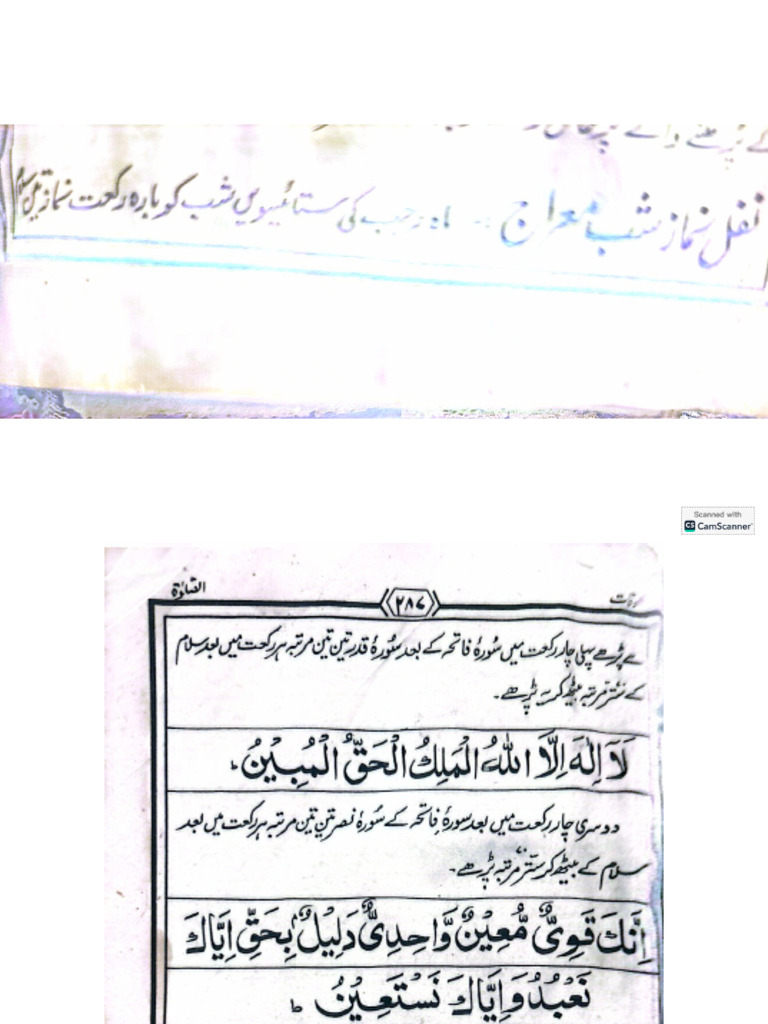 کے پڑھنے والے پر
نفل نماز شب معراج :- ماہ رجب کی ستائیسویں شب کو بارہ رکعت نماز تین سلام
Scanned with
CS CamScanner
۲۸۷
الصلوٰۃ
سے پڑھے پہلی چار رکعت میں سُورۂ فاتحہ کے بعد سُورۂ قدر تین تین مرتبہ ہر رکعت میں بعد سلام
کے ستّر مرتبہ بیٹھ کر یہ پڑھے۔
لَا اِلٰهَ اِلَّا اللّٰهُ الْمَلِكُ الْحَقُّ الْمُبِيْنُ ط
دوسری چار رکعت میں بعد سورۂ فاتحہ کے سُورۂ نصر تین تین مرتبہ ہر رکعت میں بعد
سلام کے بیٹھ کر ستّر مرتبہ پڑھے۔
اِنَّكَ قَوِيٌّ مُّعِيْنٌ وَّاحِدِيٌّ دَلِيْلٌ بِحَقِّ اِيَّاكَ
نَعْبُدُ وَاِيَّاكَ نَسْتَعِيْنُ ط